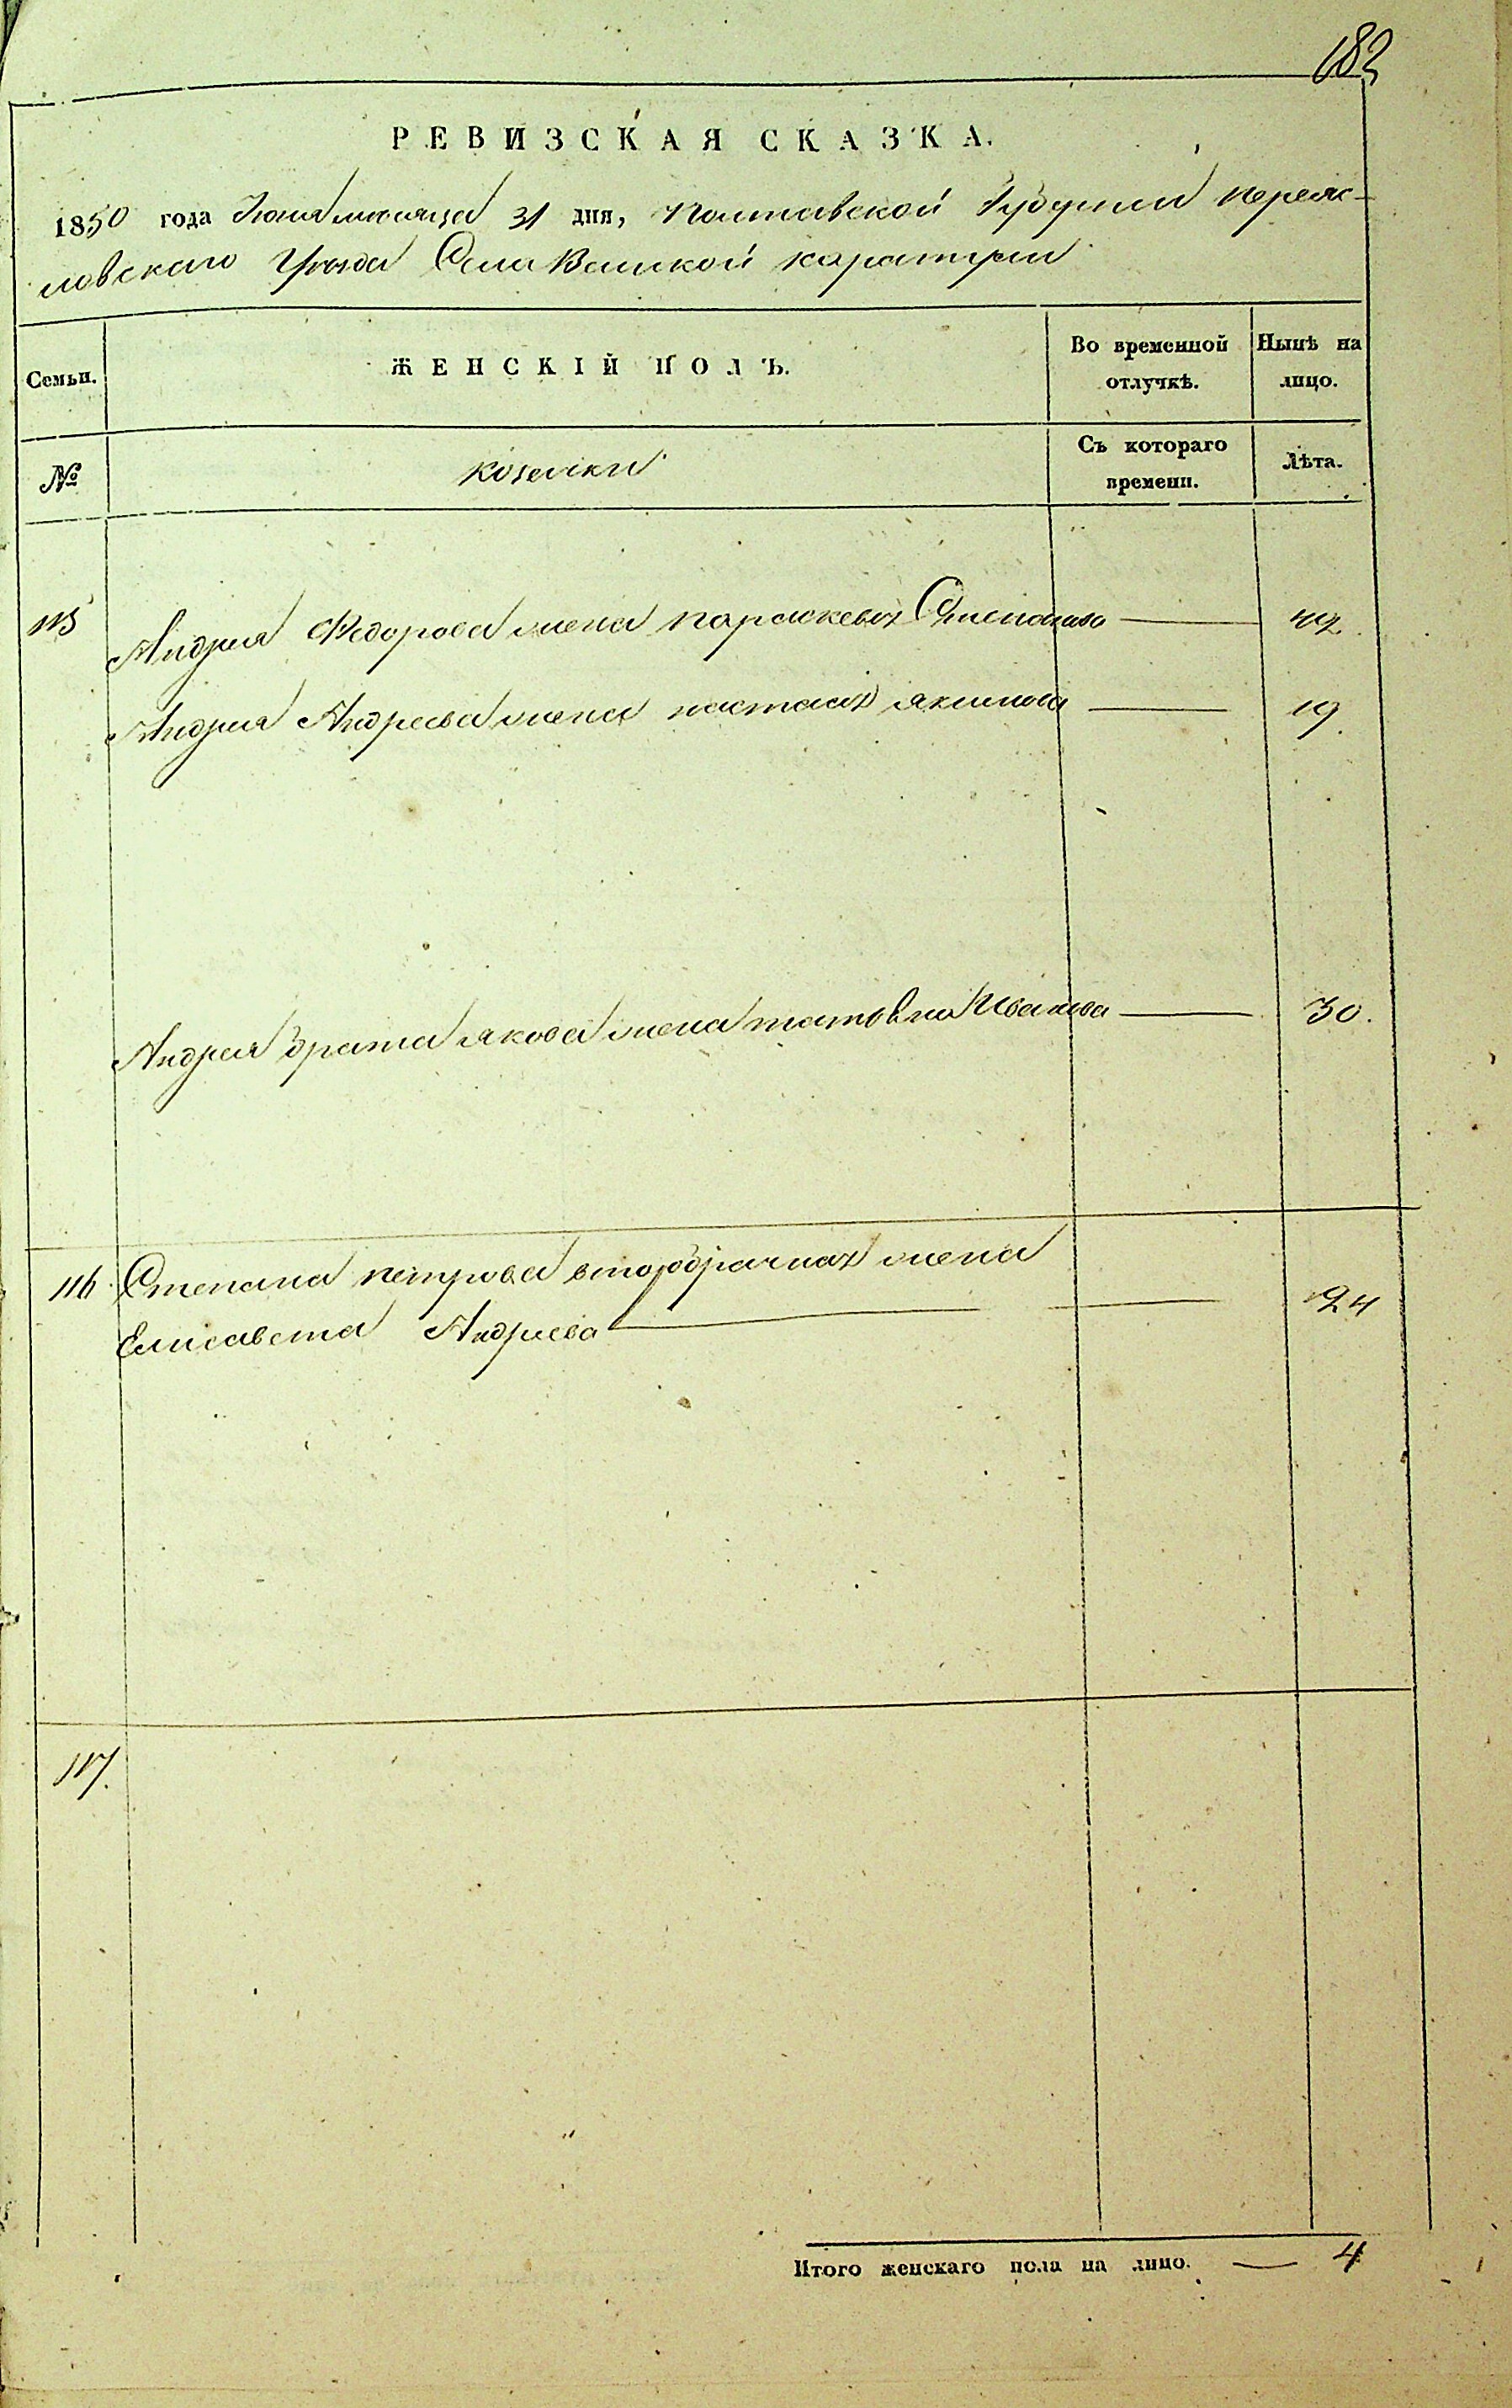 182
РЕВИЗСКАЯ СКАЗКА.
1850 года Июля месяца 31 дня, Полтавской Губернии Переяс-
ловскаго Уезда Села Великой каратули
Семьи.
ЖЕНСКІЙ ПОЛЪ.
Во временной отлучкѣ.
Нынѣ на лицо.
№
козачки
Съ котораго времени.
Лѣта.
115 Андрея Федорова жена параскевия Степанова 42.
Андрея Андреева жена настасия якимова 19.
Андрея брата якова жена татьяна Иванова 30.
116 Степана петрова второбрачная жена
Елисавета Андреева 24
117.
Итого женскаго пола на лицо. — 4